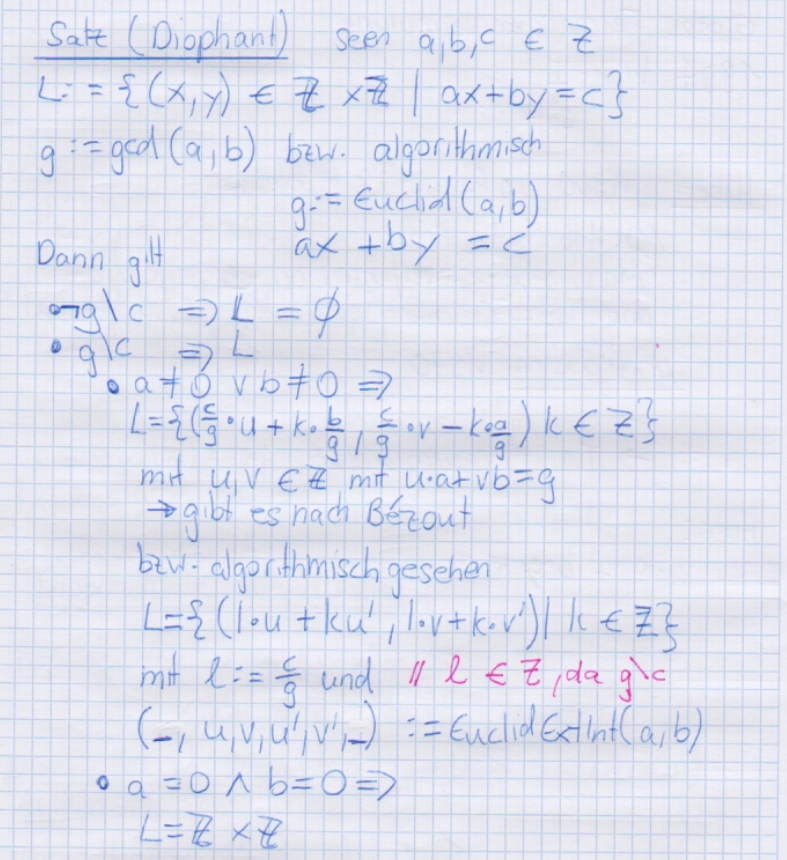 Satz (Diophant) seen a,b,c ∈ ℤ
L:={(x,y) ∈ ℤ×ℤ | ax+by=c}
g:=gcd(a,b) bzw. algorithmisch
g:=Euclid(a,b)
ax+by=c
Dann gilt
• ¬g\c ⇒ L = ∅
• g\c ⇒ L
• a≠0 ∨ b≠0 ⇒
L={(c/g·u+k·b/g, c/g·v-k·a/g) k ∈ ℤ}
mit u,v ∈ ℤ mit u·a+vb=g
→ gibt es nach Bézout
bzw. algorithmisch gesehen
L={(l·u+ku', l·v+k·v')| k ∈ ℤ}
mit l:=c/g und // l ∈ ℤ, da g\c
(_, u,v,u',v',_) := EuclidExtInt(a,b)
• a=0 ∧ b=0 ⇒
L=ℤ×ℤ